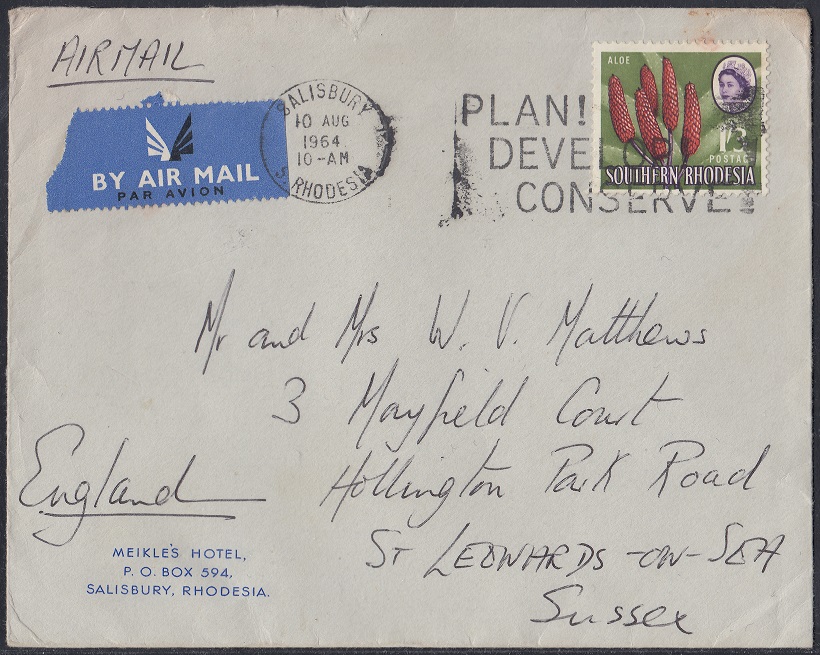 AIRMAIL
BY AIR MAIL
PAR AVION
SALISBURY
10 AUG
1964
10-AM
S. RHODESIA
PLAN!
DEVELOP
CONSERVE!
ALOE
1/3
POSTAGE
SOUTHERN RHODESIA
Mr and Mrs W. V. Matthews
3 Mayfield Court
Hollington Park Road
St LEONARDS-ON-SEA
Sussex
England
MEIKLE'S HOTEL,
P. O. BOX 594,
SALISBURY, RHODESIA.